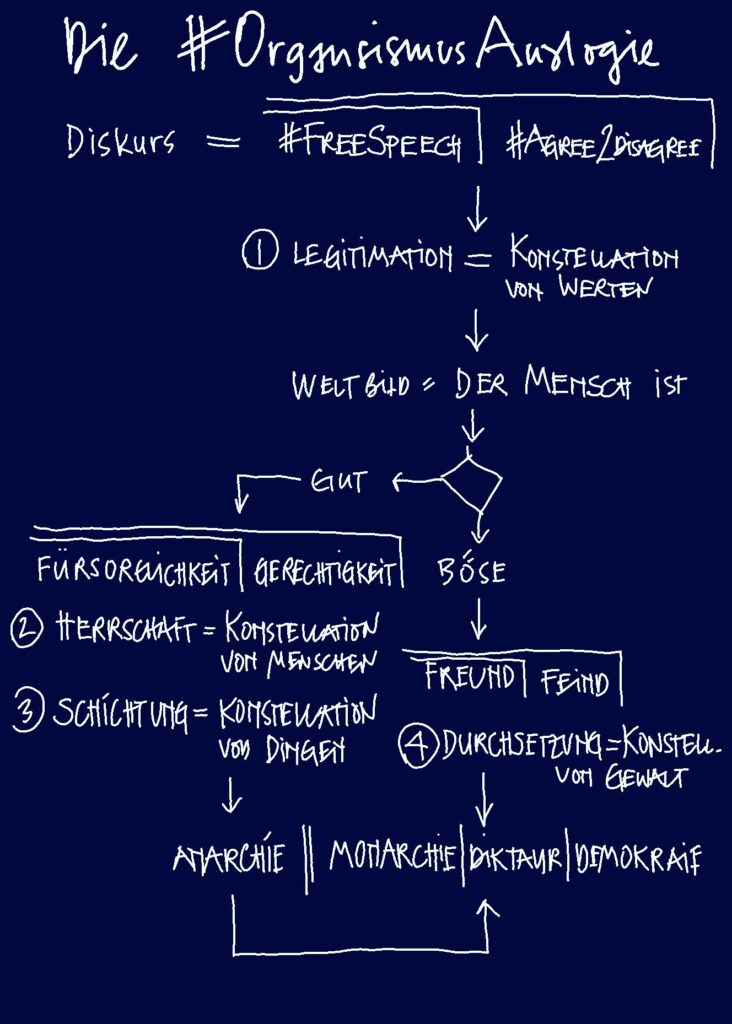 Die #OrganisismusAnalogie
Diskurs = #FREESPEECH #AGREE2DISAGREE
① LEGITIMATION = KONSTELLATION
VON WERTEN
WELTBILD = DER MENSCH IST
GUT
FÜRSORGLICHKEIT GERECHTIGKEIT BÖSE
② HERRSCHAFT = KONSTELLATION
VON MENSCHEN
FREUND FEIND
③ SCHICHTUNG = KONSTELLATION
VON DINGEN
④ DURCHSETZUNG = KONSTELL.
VON GEWALT
ANARCHIE || MONARCHIE | DIKTAUR | DEMOKRAIE